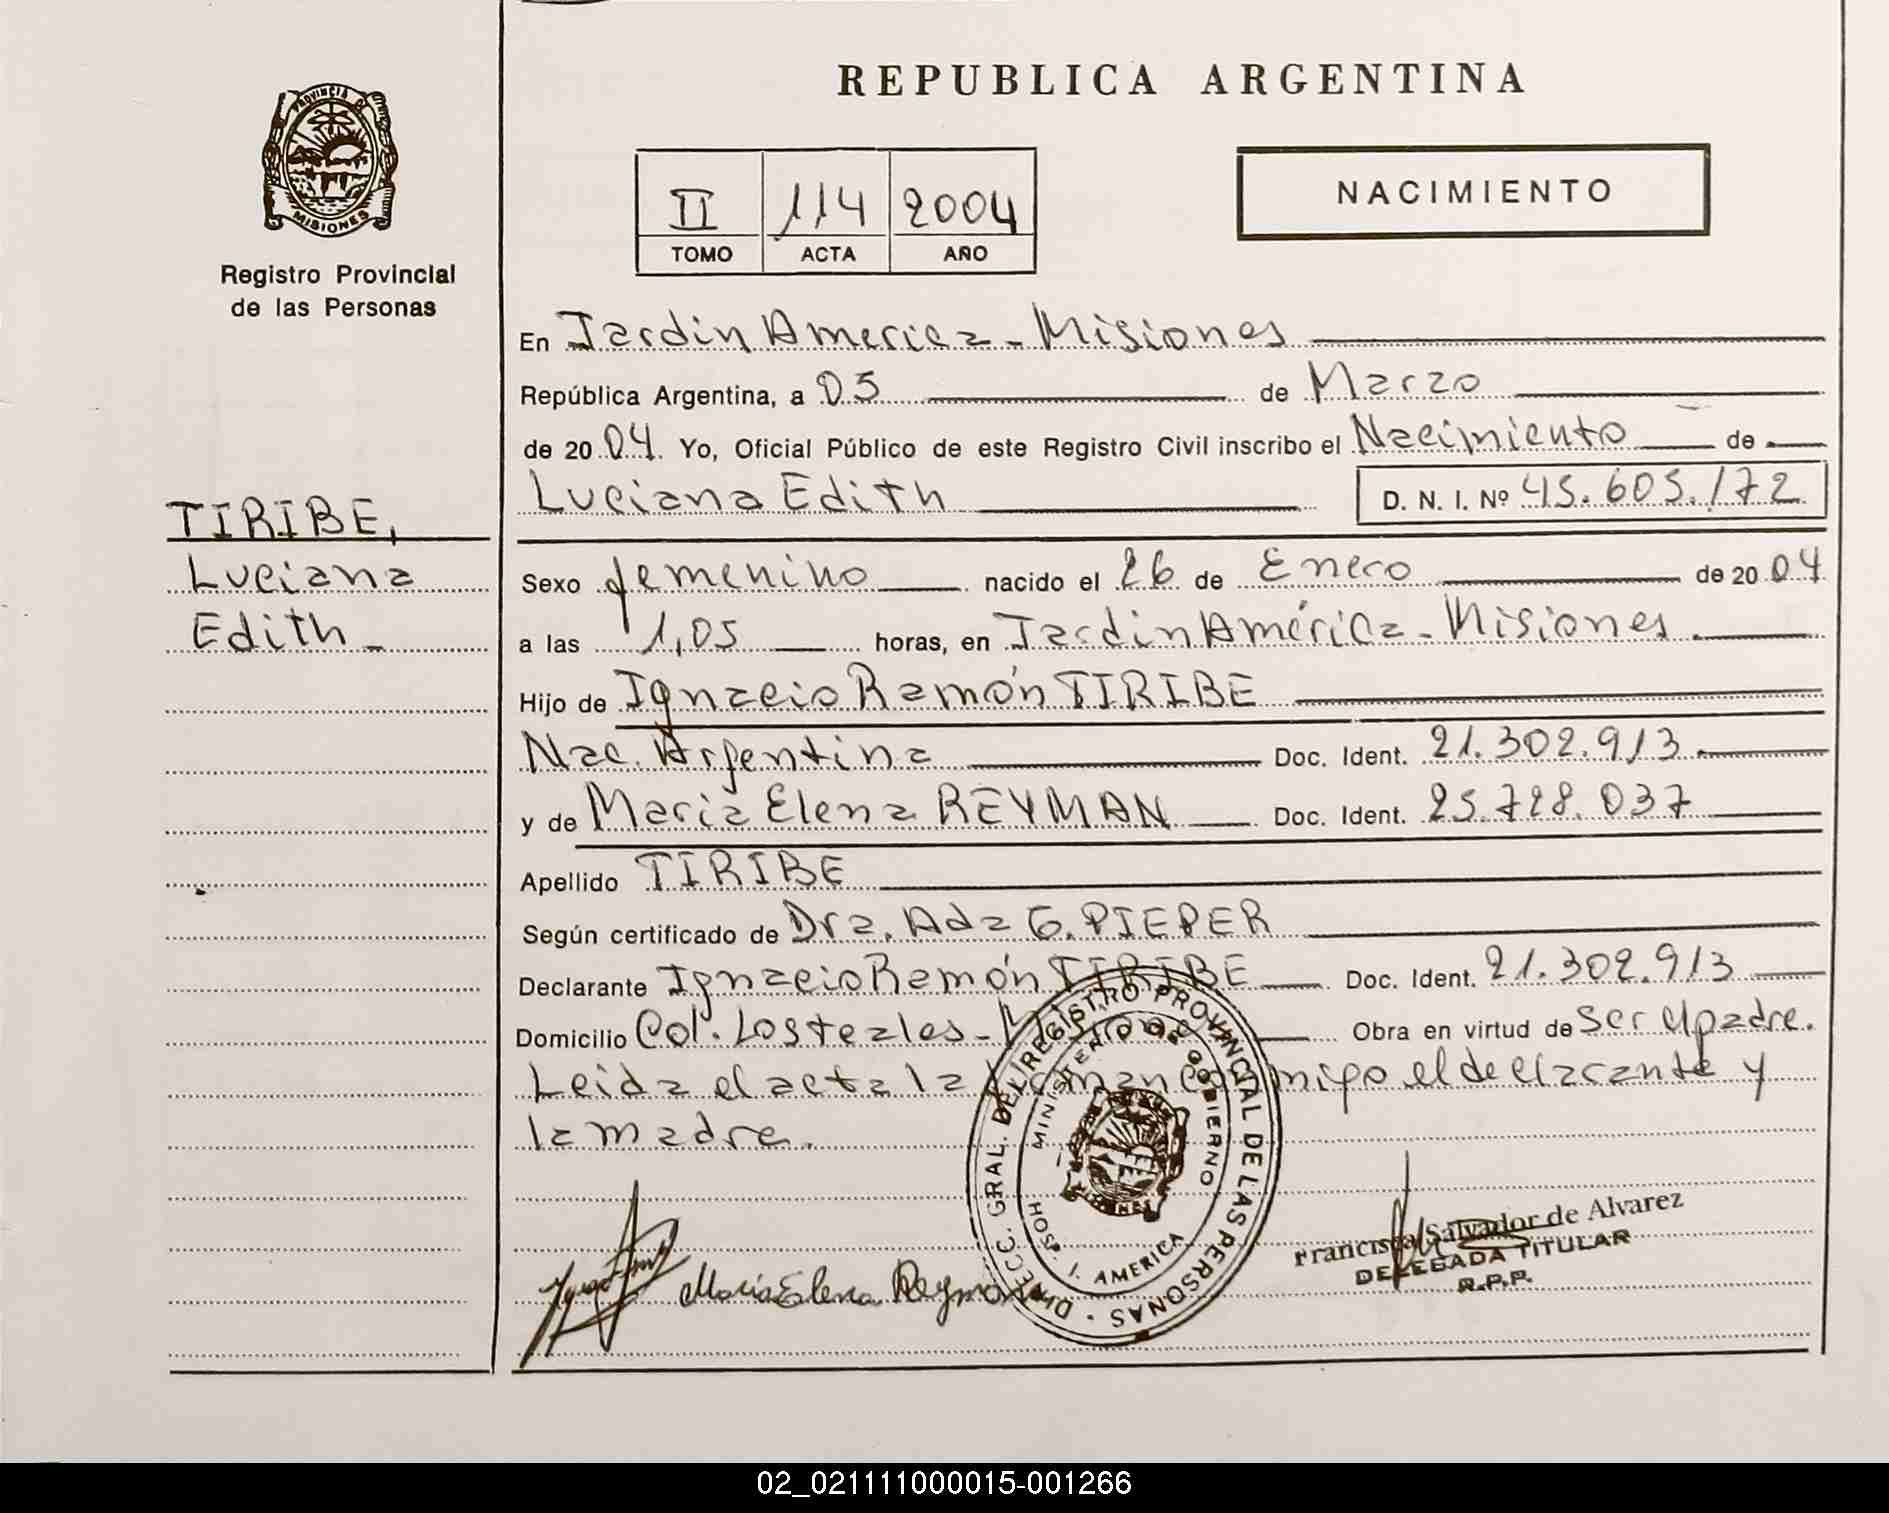 REPUBLICA ARGENTINA
PROVINCIA DE
MISIONES
Registro Provincial
de las Personas
II 114 2004
TOMO ACTA AÑO
NACIMIENTO
En Jardin America - Misiones
República Argentina, a 05 de Marzo
de 2004. Yo, Oficial Público de este Registro Civil inscribo el Nacimiento de
Luciana Edith D. N. I. Nº 45.605.172
TIRIBE,
Luciana
Edith -
Sexo femenino nacido el 26 de Enero de 2004
a las 1,05 horas, en Jardin América - Misiones
Hijo de Ignacio Ramón TIRIBE
Nac. Argentina Doc. Ident. 21.302.913
y de Maria Elena REYMAN Doc. Ident. 25.728.037
Apellido TIRIBE
Según certificado de Dra. Ada G. PIEPER
Declarante Ignacio Ramón TIRIBE Doc. Ident. 21.302.913
Domicilio Col. Los teales - Misiones Obra en virtud de Ser el padre.
Leida el acta la firman conmigo el declarante y
la madre.
DIRECC. GRAL. DEL REGISTRO PROVINCIAL DE LAS PERSONAS
MINISTERIO DE GOBIERNO
HOSP. J. AMERICA
MISIONES
Maria Elena Reyman
Francisca Salvador de Alvarez
DELEGADA TITULAR
R.P.P.
02_021111000015-001266